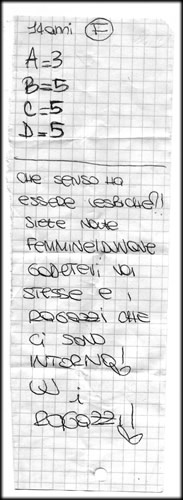 14 anni F
A=3
B=5
C=5
D=5
CHE SENSO HA
ESSERE LESBICHE?!
SIETE NATE
FEMMINE! DUNQUE
GODETEVI VOI
STESSE E I
RAGAZZI CHE
CI SONO
INTORNO!
W i
RAGAZZI!